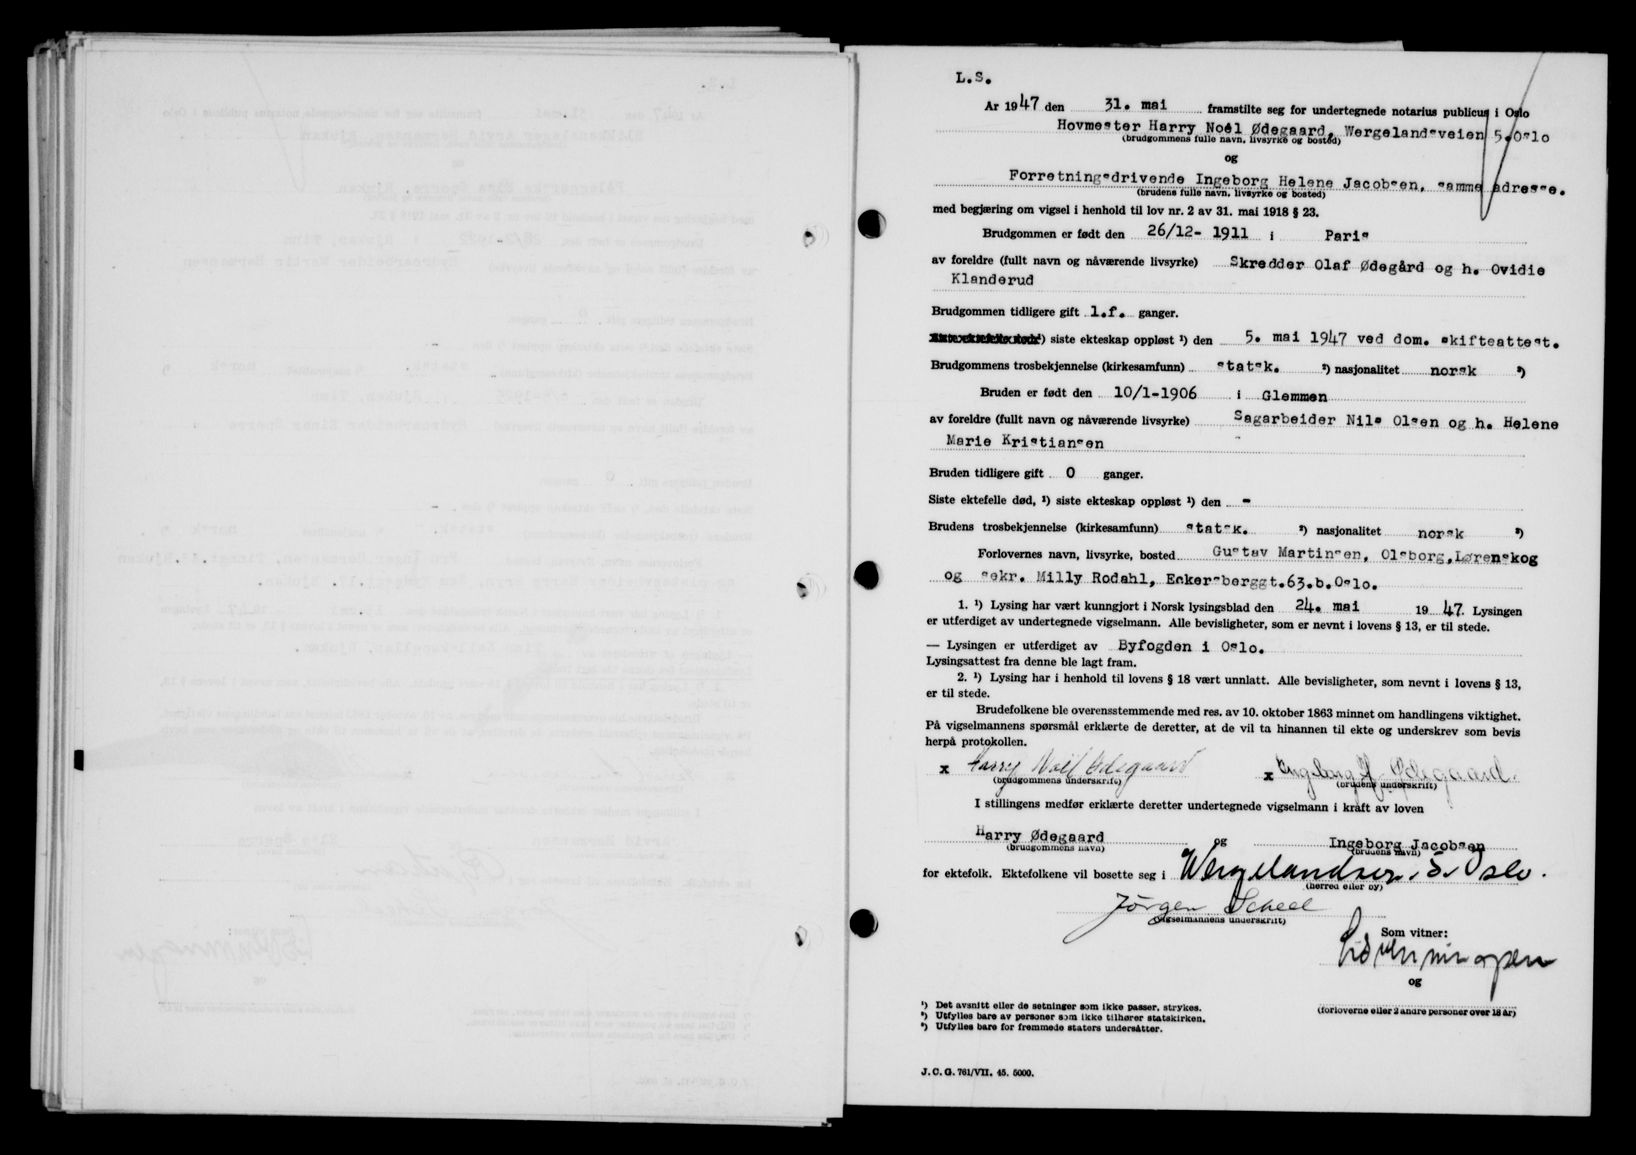 L.S.
År 1947 den 31. mai framstilte seg for undertegnede notarius publicus i Oslo
Hovmester Harry Noël Ødegaard, Wergelandsveien 5, Oslo
(brudgommens fulle navn, livsyrke og bosted)
og
Forretningsdrivende Ingeborg Helene Jacobsen, samme adresse.
(brudens fulle navn, livsyrke og bosted)
med begjæring om vigsel i henhold til lov nr. 2 av 31. mai 1918 § 23.
Brudgommen er født den 26/12- 1911 i Paris
av foreldre (fullt navn og nåværende livsyrke) Skredder Olaf Ødegård og h. Ovidie
Klanderud
Brudgommen tidligere gift 1.f. ganger.
¹) siste ekteskap oppløst ¹) den 5. mai 1947 ved dom. skifteattest.
Brudgommens trosbekjennelse (kirkesamfunn) statsk. ²) nasjonalitet norsk ³)
Bruden er født den 10/1-1906 i Glemmen
av foreldre (fullt navn og nåværende livsyrke) Sagarbeider Nils Olsen og h. Helene
Marie Kristiansen
Bruden tidligere gift 0 ganger.
Siste ektefelle død, ¹) siste ekteskap oppløst ¹) den -
Brudens trosbekjennelse (kirkesamfunn) statsk. ²) nasjonalitet norsk ³)
Forlovernes navn, livsyrke, bosted Gustav Martinsen, Olsborg, Lørenskog
og sekr. Milly Rodahl, Eckersberggt.63.b.Oslo.
1. ¹) Lysing har vært kunngjort i Norsk lysingsblad den 24. mai 1947. Lysingen
er utferdiget av undertegnede vigselmann. Alle bevisligheter, som er nevnt i lovens § 13, er til stede.
— Lysingen er utferdiget av Byfogden i Oslo.
Lysingsattest fra denne ble lagt fram.
2. ¹) Lysing har i henhold til lovens § 18 vært unnlatt. Alle bevisligheter, som nevnt i lovens § 13,
er til stede.
Brudefolkene ble overensstemmende med res. av 10. oktober 1863 minnet om handlingens viktighet.
På vigselmannens spørsmål erklærte de deretter, at de vil ta hinannen til ekte og underskrev som bevis
herpå protokollen.
x Harry Noël Ødegaard x Ingeborg H. Ødegaard.
(brudgommens underskrift) (brudens underskrift)
I stillingens medfør erklærte deretter undertegnede vigselmann i kraft av loven
Harry Ødegaard og Ingeborg Jacobsen
(brudgommens navn) (brudens navn)
for ektefolk. Ektefolkene vil bosette seg i Wergelandsv. 5. Oslo.
(herred eller by)
Jörgen Scheel
(vigselmannens underskrift)
Som vitner:
og
(forloverne eller 2 andre personer over 18 år)
¹) Det avsnitt eller de setninger som ikke passer, strykes.
²) Utfylles bare av personer som ikke tilhører statskirken.
³) Utfylles bare for fremmede staters undersåtter.
J. C. G. 761/VII. 45. 5000.